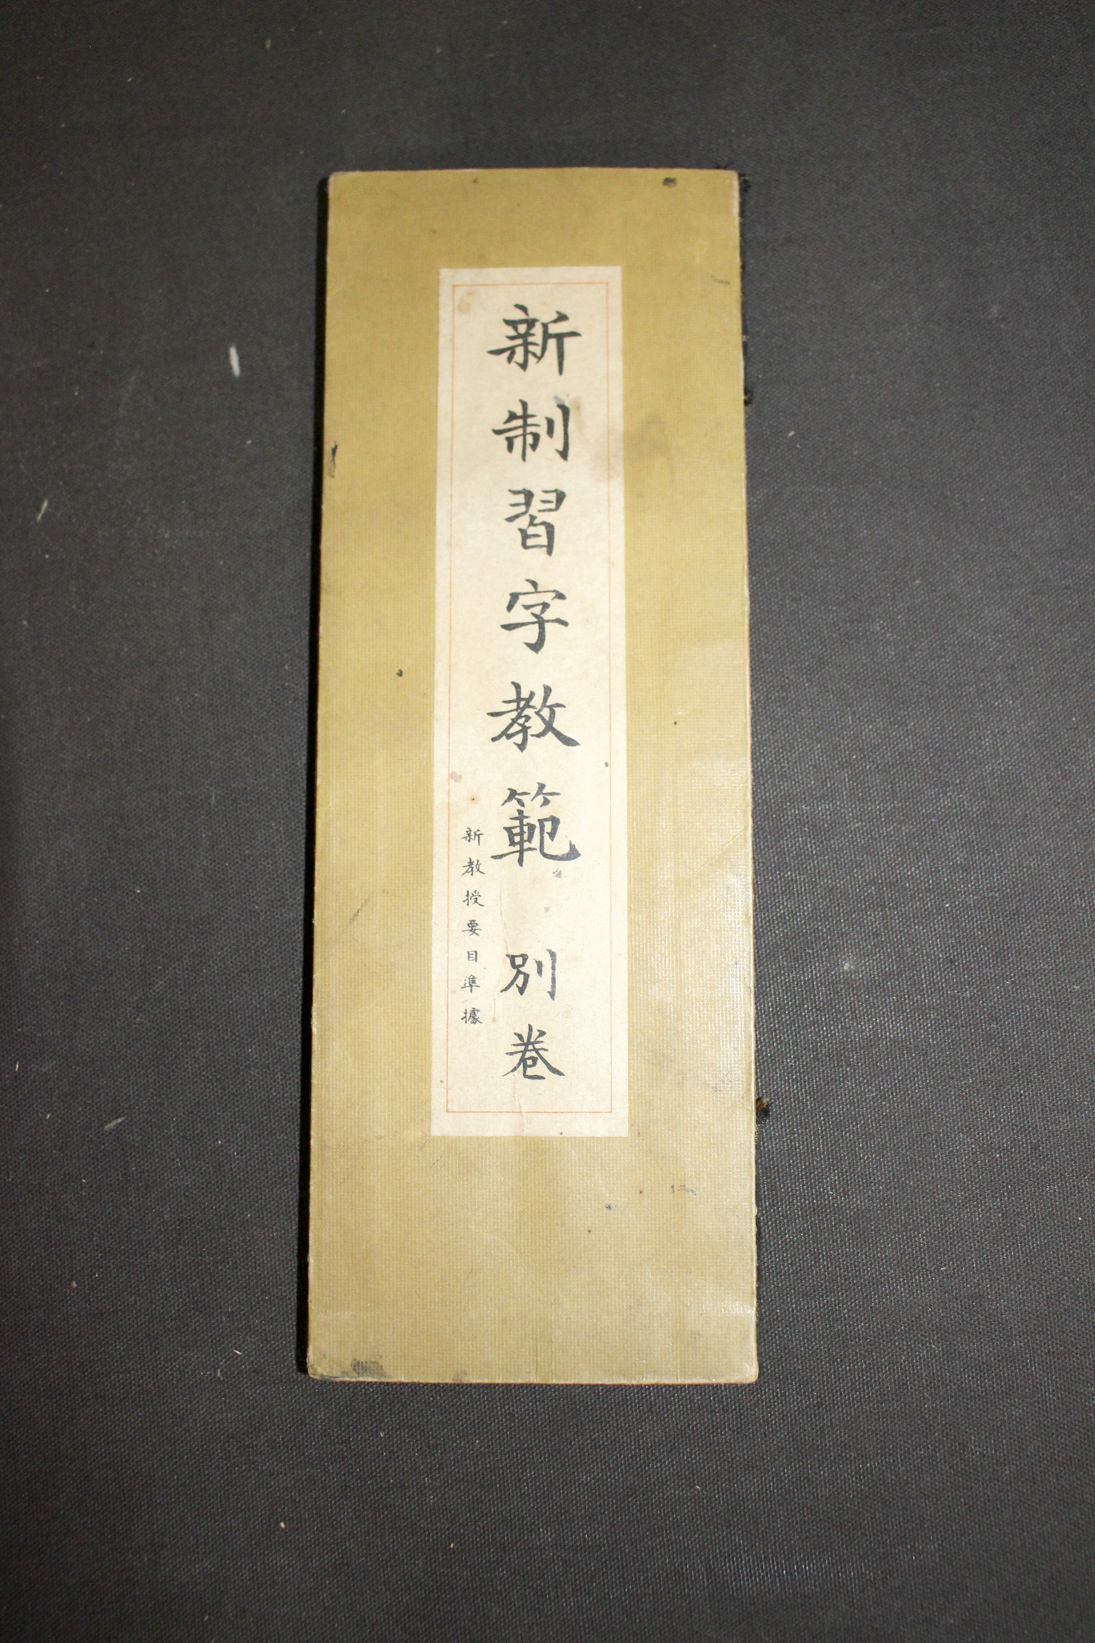 新制習字教範 別巻
新教授要目準據